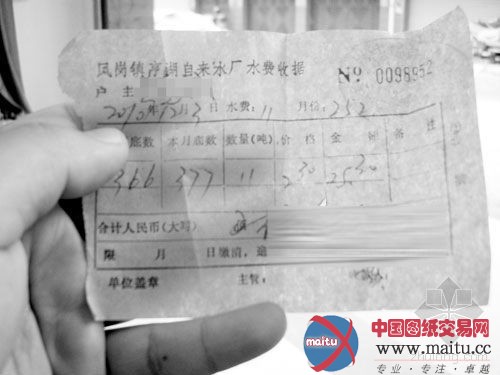 凤岗镇 湖自来水厂水费收据
Nº 0098952
户 主
2010年12月3日 水费: 11 月份: 252
底数 本月底数 数量(吨) 价 格 金 额 备 注
366 377 11 2 30 25 30
合计人民币(大写)
限 月 日缴清,逾
单位盖章 主管:
maitu
中国图纸交易网
www.maitu.cc
专业·专注·卓越